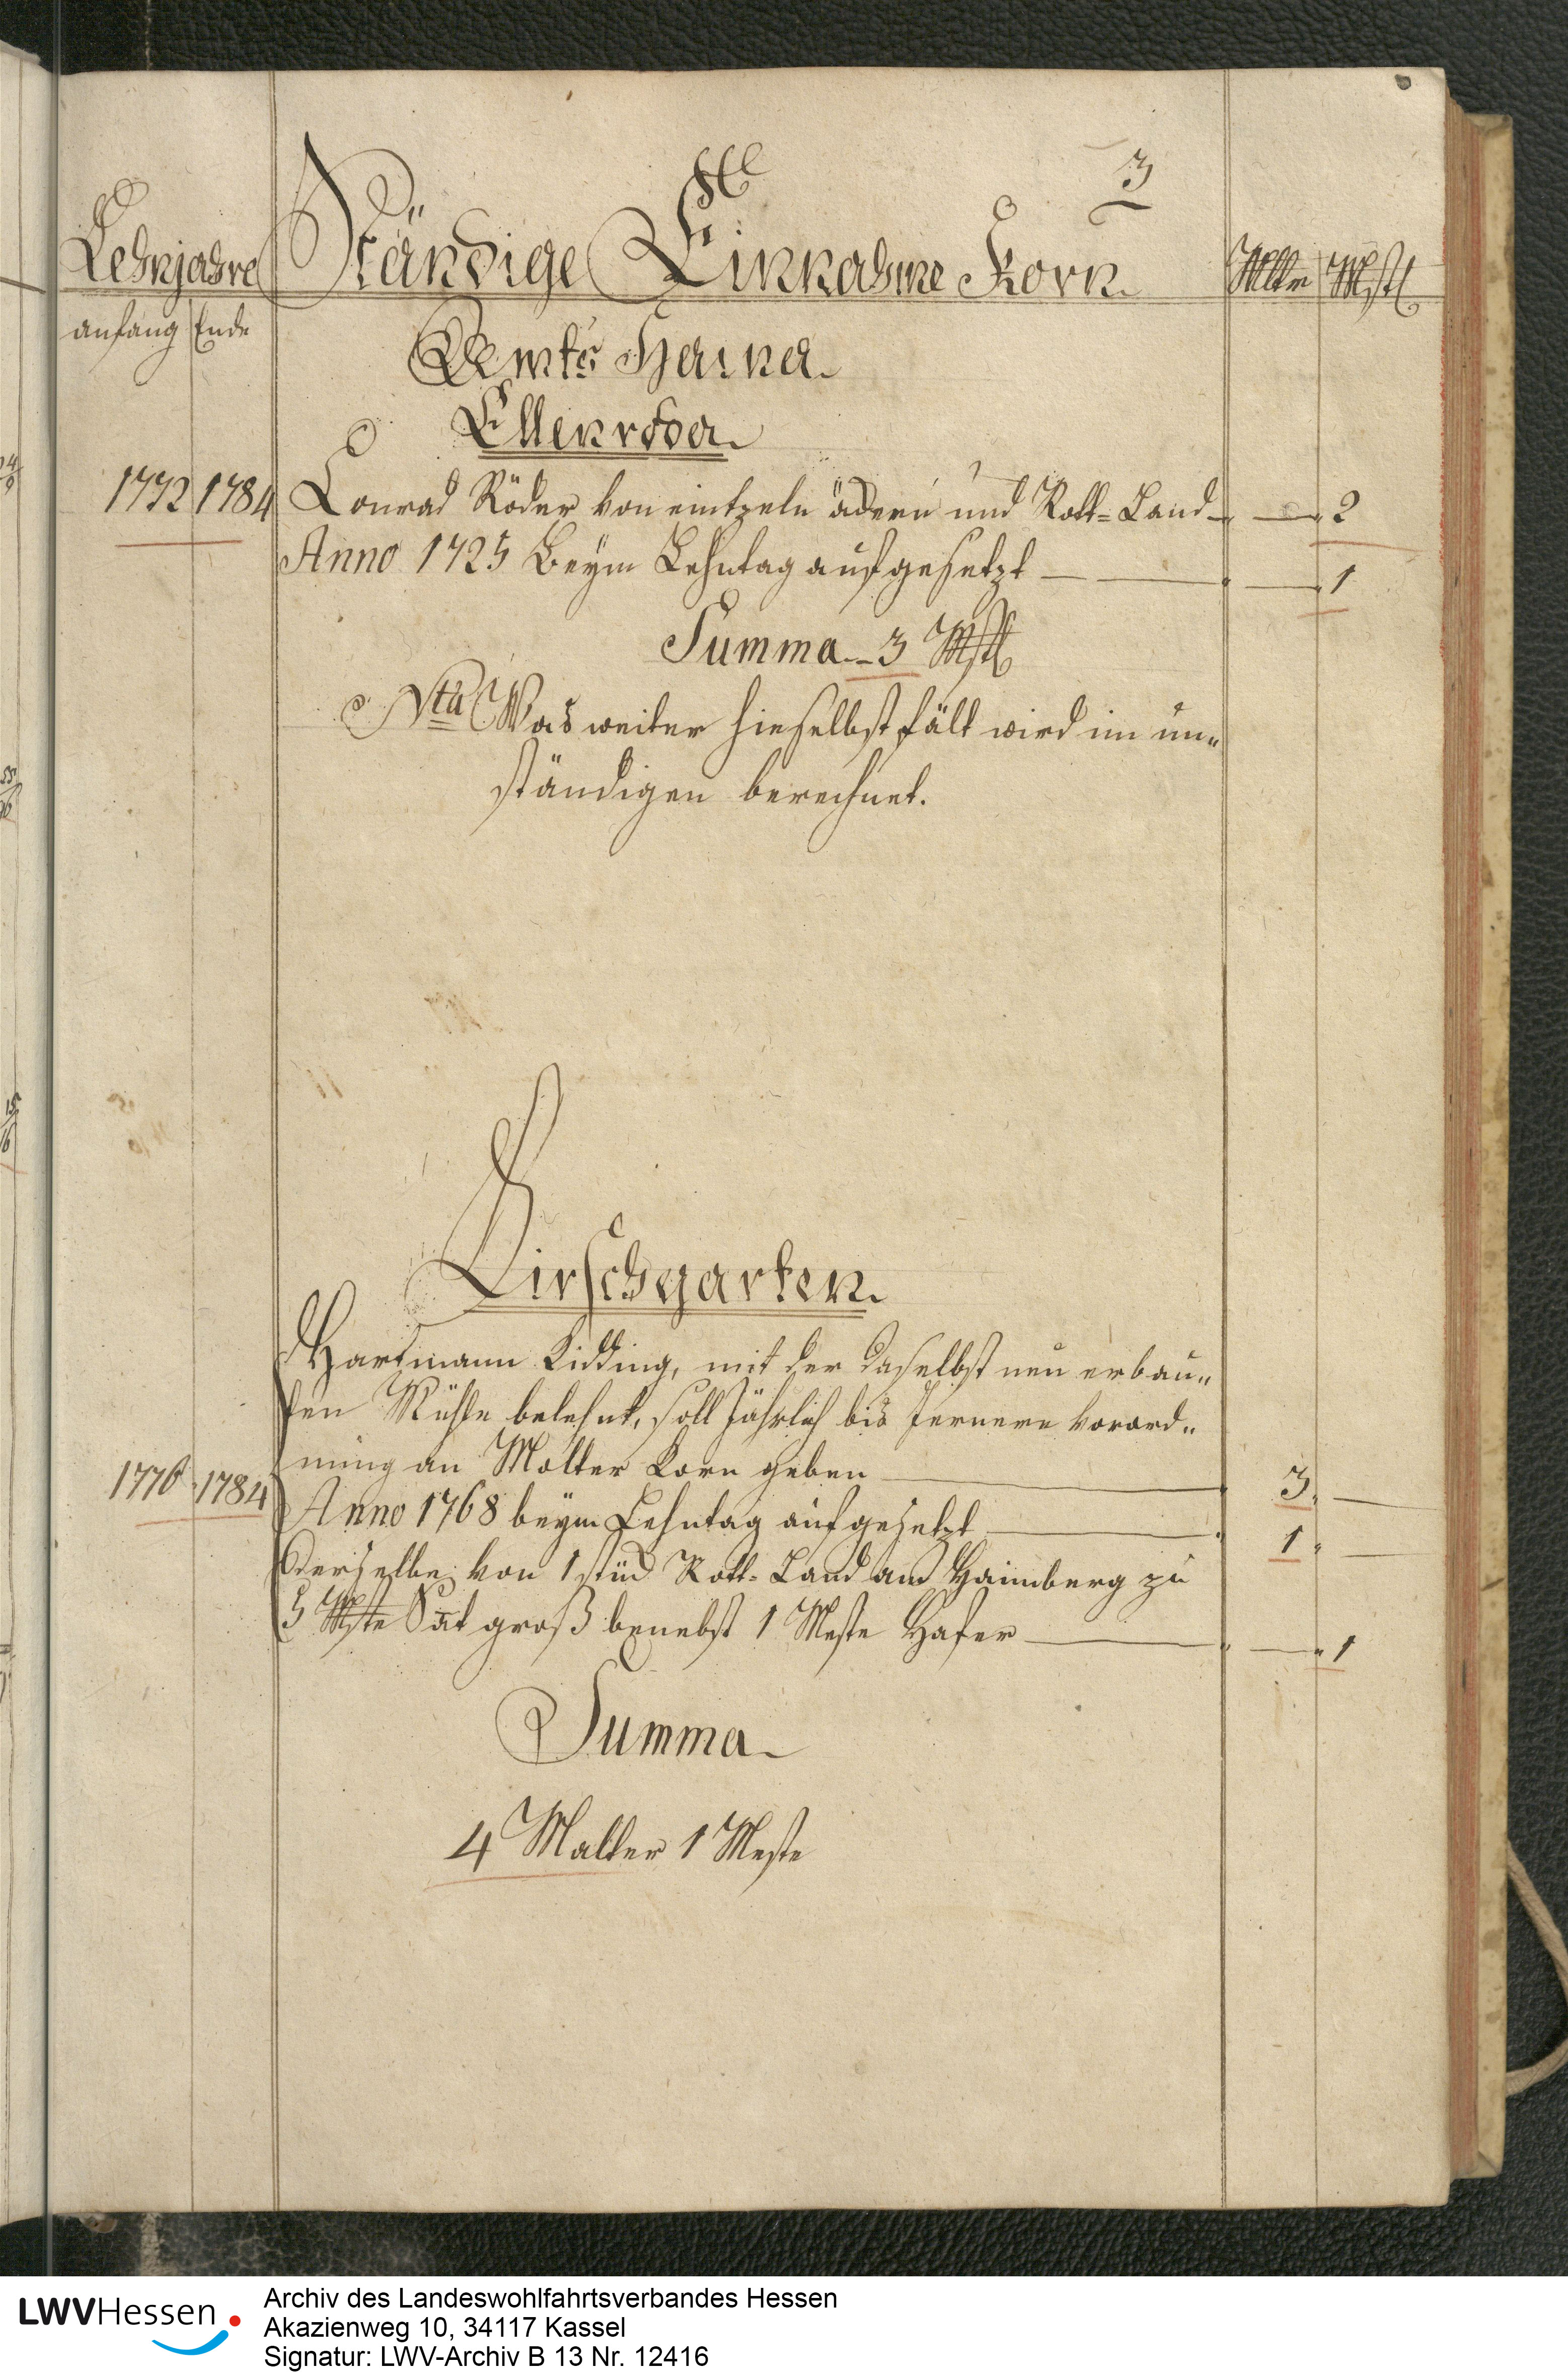 3
Lehnjahre Ständige Einnahme Korn Mltr Mste
anfang Ende
Amts Haina
Ellenroda
1772 1784 Conrad Röder von eintzeln äckern und Rott=Land 2
Anno 1725 Beym Lehntag aufgesetzt 1
Summa 3 Mste
Nta Was weiter hieselbst fält wird im un„
ständigen berechnet.
Hirschgarten
Hartmann Kidding, mit der daselbst neu erbau„
ten Mühle belehnt, soll Jährlich bis fernere verord„
nung an Molter Korn geben 3
1776 1784
Anno 1768 beym Lehntag aufgesetzt 1
derselbe von 1 stück Rott=Land am Haimberg zu
5 Mste Sāt groß benebst 1 Meste Hafer 1
Summa
4 Malter 1 Meste
LWVHessen
Archiv des Landeswohlfahrtsverbandes Hessen
Akazienweg 10, 34117 Kassel
Signatur: LWV-Archiv B 13 Nr. 12416